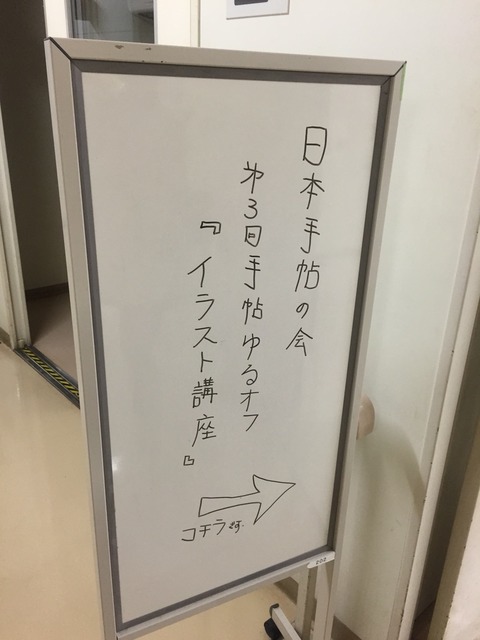 日本手帖の会
第3回手帖ゆるオフ
『イラスト講座』
コチラです.
202